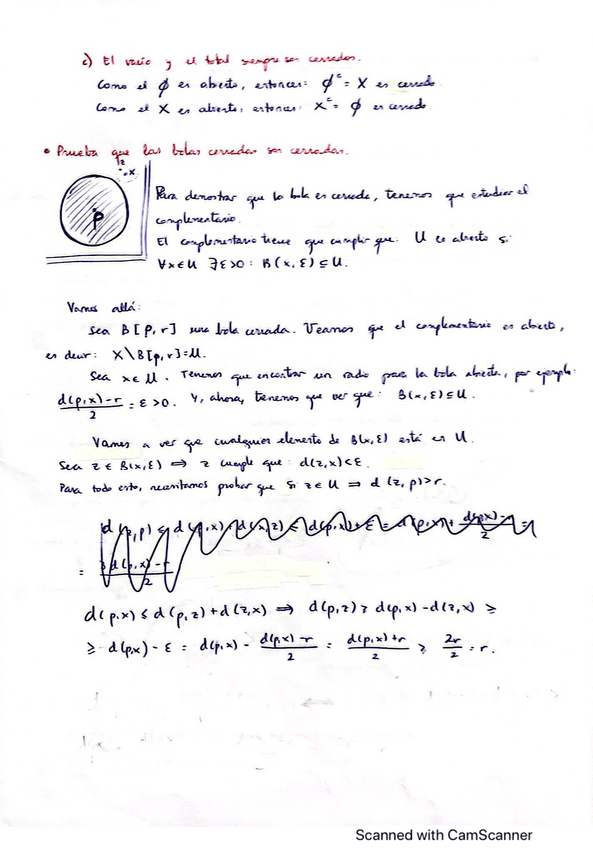 c) El vacío y el total siempre son cerrados.
Como el ϕ es abierto, entonces: ϕᶜ = X es cerrado
Como el X es abierto, entonces: Xᶜ = ϕ es cerrado
• Prueba que las bolas cerradas son cerradas.
z
x
p
Para demostrar que la bola es cerrada, tenemos que estudiar el
complementario.
El complementario tiene que cumplir que: U es abierto si:
∀x∈U ∃ε>0: B(x,ε)⊆U.
Vamos allá:
Sea B[p,r] una bola cerrada. Veamos que el complementario es abierto,
es decir: X\B[p,r]=U.
Sea x∈U. Tenemos que encontrar un radio para la bola abierta, por ejemplo:
(d(p,x)-r)/2 = ε>0. Y, ahora, tenemos que ver que: B(x,ε)⊆U.
Vamos a ver que cualquier elemento de B(x,ε) está en U.
Sea z∈B(x,ε) ⟹ z cumple que: d(z,x)<ε.
Para todo esto, necesitamos probar que si z∈U ⟹ d(z,p)>r.
d(p,x) ≤ d(p,z)+d(z,x) ⟹ d(p,z) ≥ d(p,x)-d(z,x) ≥
≥ d(p,x)-ε = d(p,x) - (d(p,x)-r)/2 = (d(p,x)+r)/2 ≥ 2r/2 = r.
Scanned with CamScanner